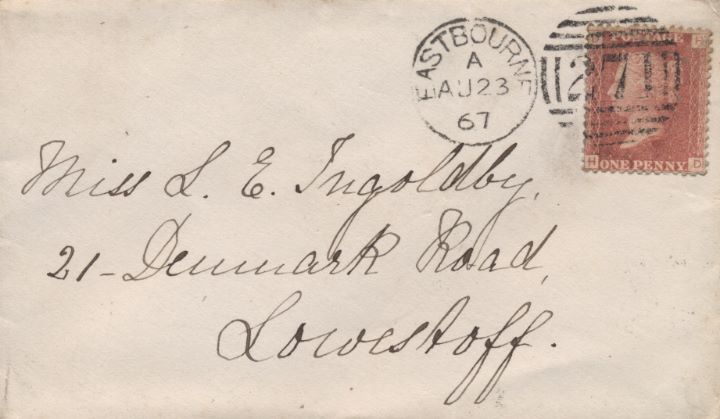 EASTBOURNE
A
AU 23
67
271
POSTAGE
H ONE PENNY D
Miss L. E. Ingoldby,
21 - Denmark Road,
Lowestoff.